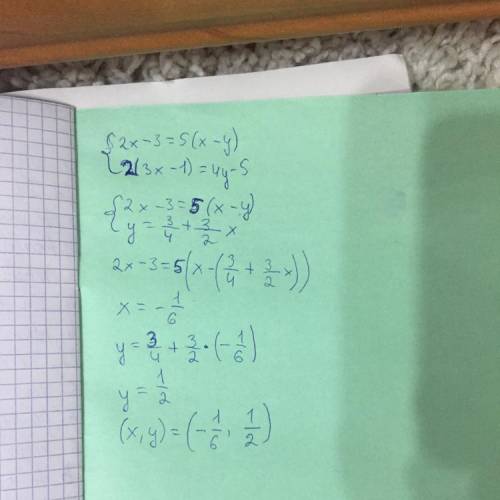 {2x-3=5(x-y)
2(3x-1)=4y-5
{2x-3=5(x-y)
y=3/4+3/2x
2x-3=5(x-(3/4+3/2x))
x=-1/6
y=3/4+3/2•(-1/6)
y=1/2
(x,y)=(-1/6,1/2)